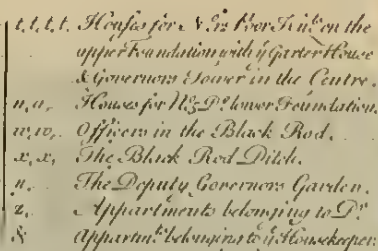 t, t, t, t. Houses for N.º 13 Poor Kn.ts on the
upper Foundation with y.e Garter House
& Governors Tower in the Centre.
u, u, Houses for N.º 5 D.º lower Foundation.
w, w, Officers in the Black Rod.
x, x, The Black Rod Ditch.
The Deputy Governors Garden.
z, Appartments belonging to D.º
& Appartm.ts belonging to y.e Housekeeper.